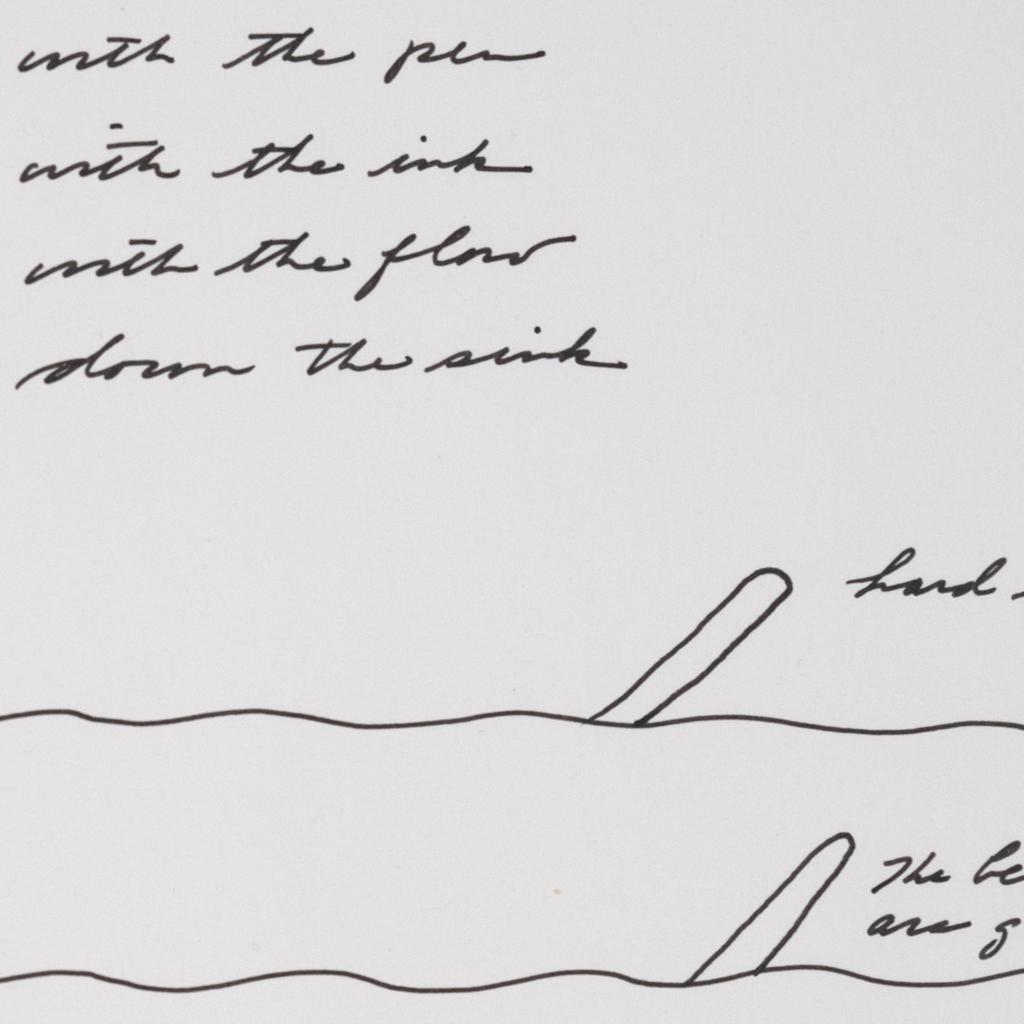 with the pen
with the ink
with the flow
down the sink
hard
The
are